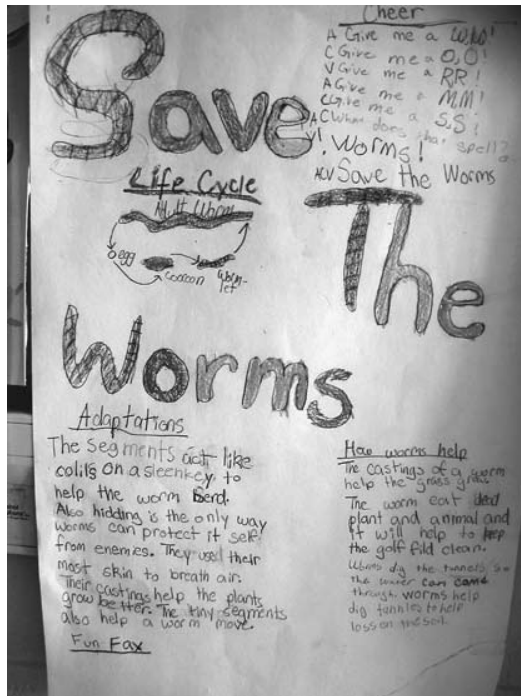 Cheer
A Give me a W,W!
C Give me a O,O!
V Give me a RR!
A Give me a MM!
C Give me a S,S!
AC What does that spell?
V! Worms!
ACV Save the Worms
Save
The
Worms
Life Cycle
Adult Worm
egg
cocoon
worm-
let
Adaptations
The segments act like
colils on a sleenkey to
help the worm Berd.
Also hidding is the only way
worms can protect it self
from enemies. They used their
most skin to breath air.
Their castings help the plants
grow better. The tiny segments
also help a worm move.
Fun Fax
How worms help
The castings of a worm
help the grass grass
The worm eat dead
plant and animal and
it will help to keep
the golf fild clean.
Worms dig the tunnels so
the water can came
through. worms help
dig tunnles to help
lossen the soil.